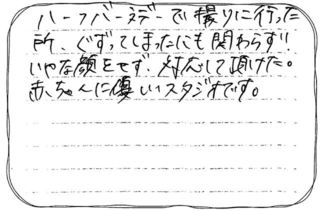 ハーフバースデーで撮りに行った
所、ぐずってしまったにも関わらず!!
いやな顔をせず、対応して頂けた。
赤ちゃんに優しいスタジオです。